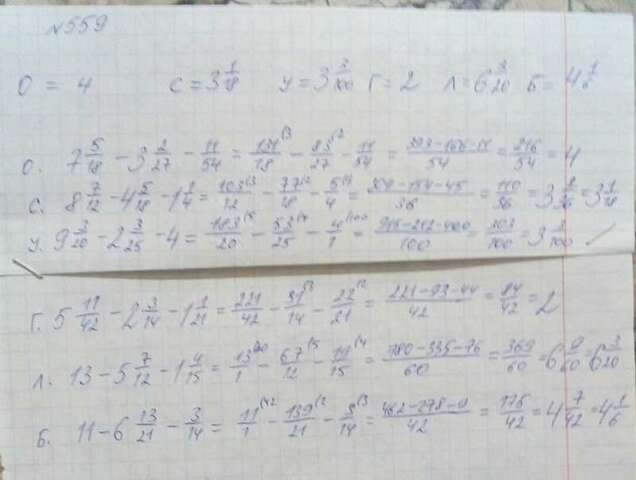 №559
О = 4 С = 3 1/18 У = 3 3/100 Г = 2 Л = 6 3/20 Б = 4 1/6
О. 7 5/18 - 3 2/27 - 11/54 = 131/18 - 83/27 - 11/54 = 393-166-11/54 = 216/54 = 4
С. 8 7/12 - 4 5/18 - 1 1/4 = 103/12 - 77/18 - 5/4 = 309-154-45/36 = 110/36 = 3 2/36 = 3 1/18
У. 9 3/20 - 2 3/25 - 4 = 183/20 - 53/25 - 4/1 = 915-212-400/100 = 303/100 = 3 3/100
Г. 5 11/42 - 2 3/14 - 1 1/21 = 221/42 - 31/14 - 22/21 = 221-93-44/42 = 84/42 = 2
Л. 13 - 5 7/12 - 1 4/15 = 13/1 - 67/12 - 19/15 = 780-335-76/60 = 369/60 = 6 9/60 = 6 3/20
Б. 11 - 6 13/21 - 3/14 = 11/1 - 139/21 - 3/14 = 462-278-9/42 = 175/42 = 4 7/42 = 4 1/6